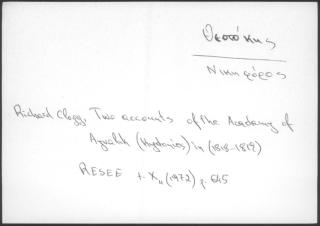 Θεοτόκης
Νικηφόρος
Richard Clogg. Two accounts of the Academy of
Ayvalik (Kydonies) in (1818-1819)
RESEE t. X,, (1972) p. 645